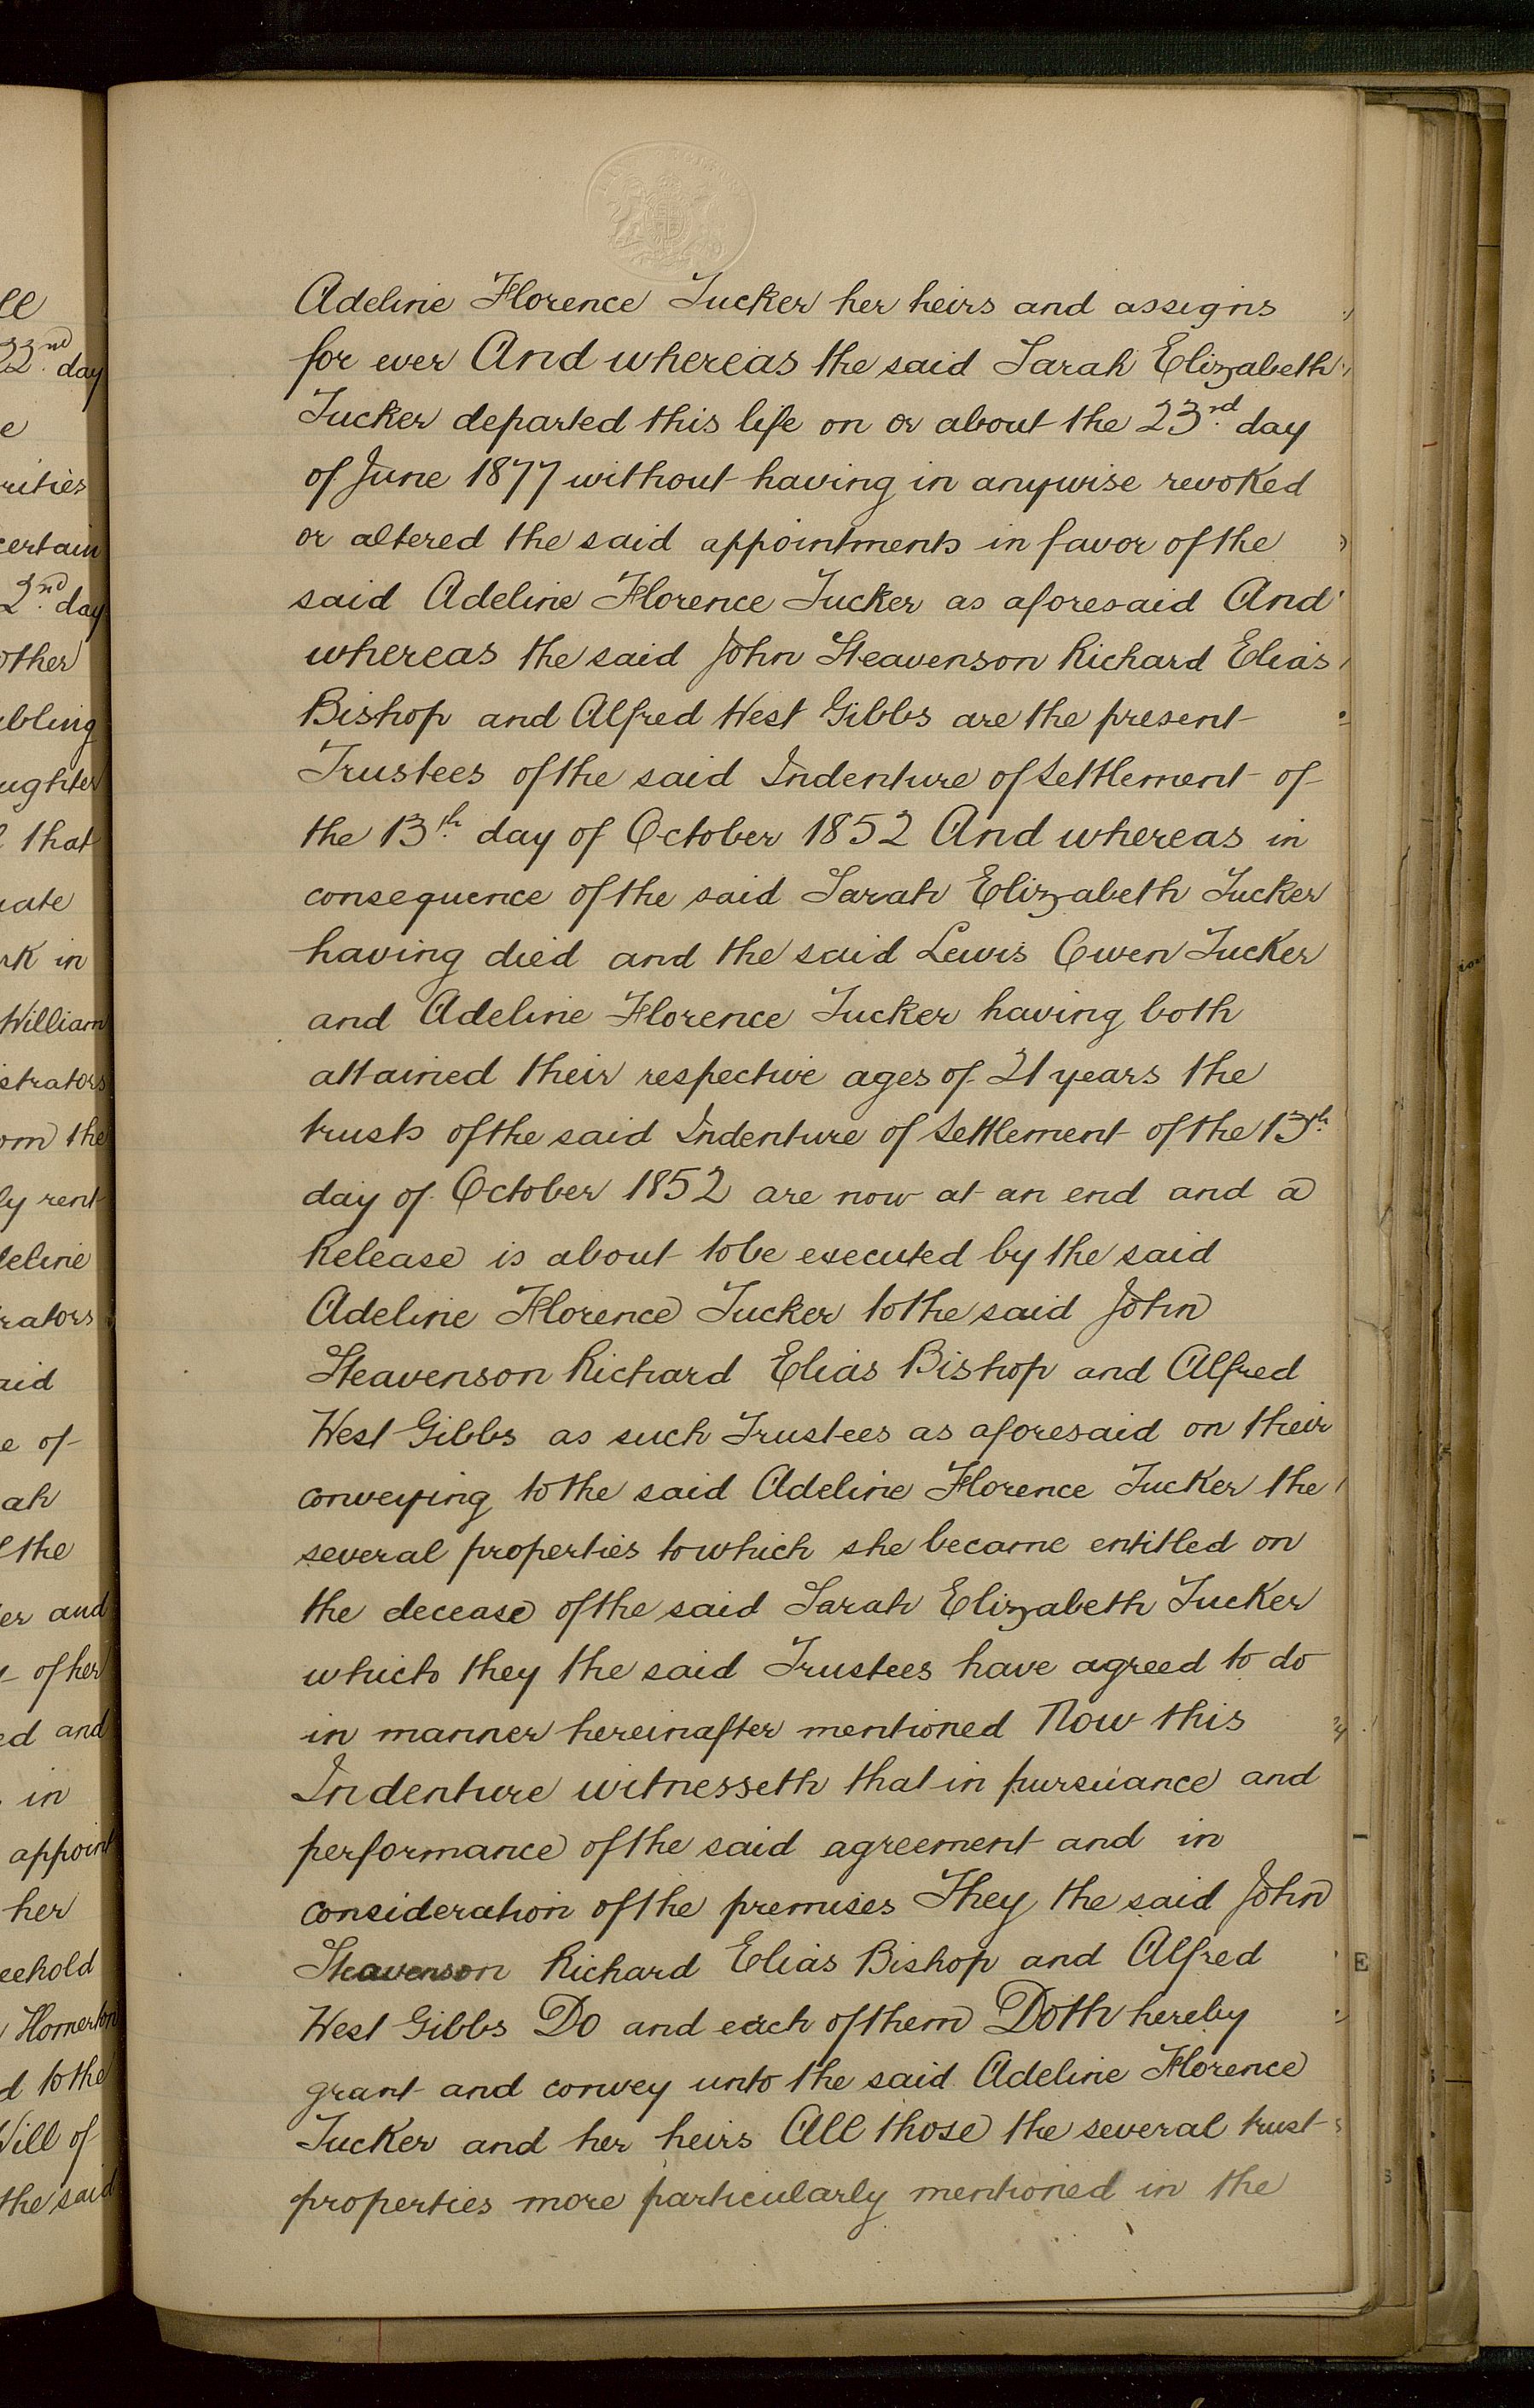 Adeline Florence Tucker her heirs and assigns
for ever And whereas the said Sarah Elizabeth
Tucker departed this life on or about the 23rd. day
of June 1877 without having in anywise revoked
or altered the said appointments in favor of the
said Adeline Florence Tucker as aforesaid And
whereas the said John Steavenson Richard Elias
Bishop and Alfred West Gibbs are the present
Trustees of the said Indenture of Settlement of
the 13th. day of October 1852 And whereas in
consequence of the said Sarah Elizabeth Tucker
having died and the said Lewis Owen Tucker
and Adeline Florence Tucker having both
attained their respective ages of 21 years the
trusts of the said Indenture of Settlement of the 13th.
day of October 1852 are now at an end and a
Release is about to be executed by the said
Adeline Florence Tucker to the said John
Steavenson Richard Elias Bishop and Alfred
West Gibbs as such Trustees as aforesaid on their
conveying to the said Adeline Florence Tucker the
several properties to which she became entitled on
the decease of the said Sarah Elizabeth Tucker
which they the said Trustees have agreed to do
in manner hereinafter mentioned Now this
Indenture witnesseth that in pursuance and
performance of the said agreement and in
consideration of the premises They the said John
Steavenson Richard Elias Bishop and Alfred
West Gibbs Do and each of them Doth hereby
grant and convey unto the said Adeline Florence
Tucker and her heirs All those the several trust
properties more particularly mentioned in the